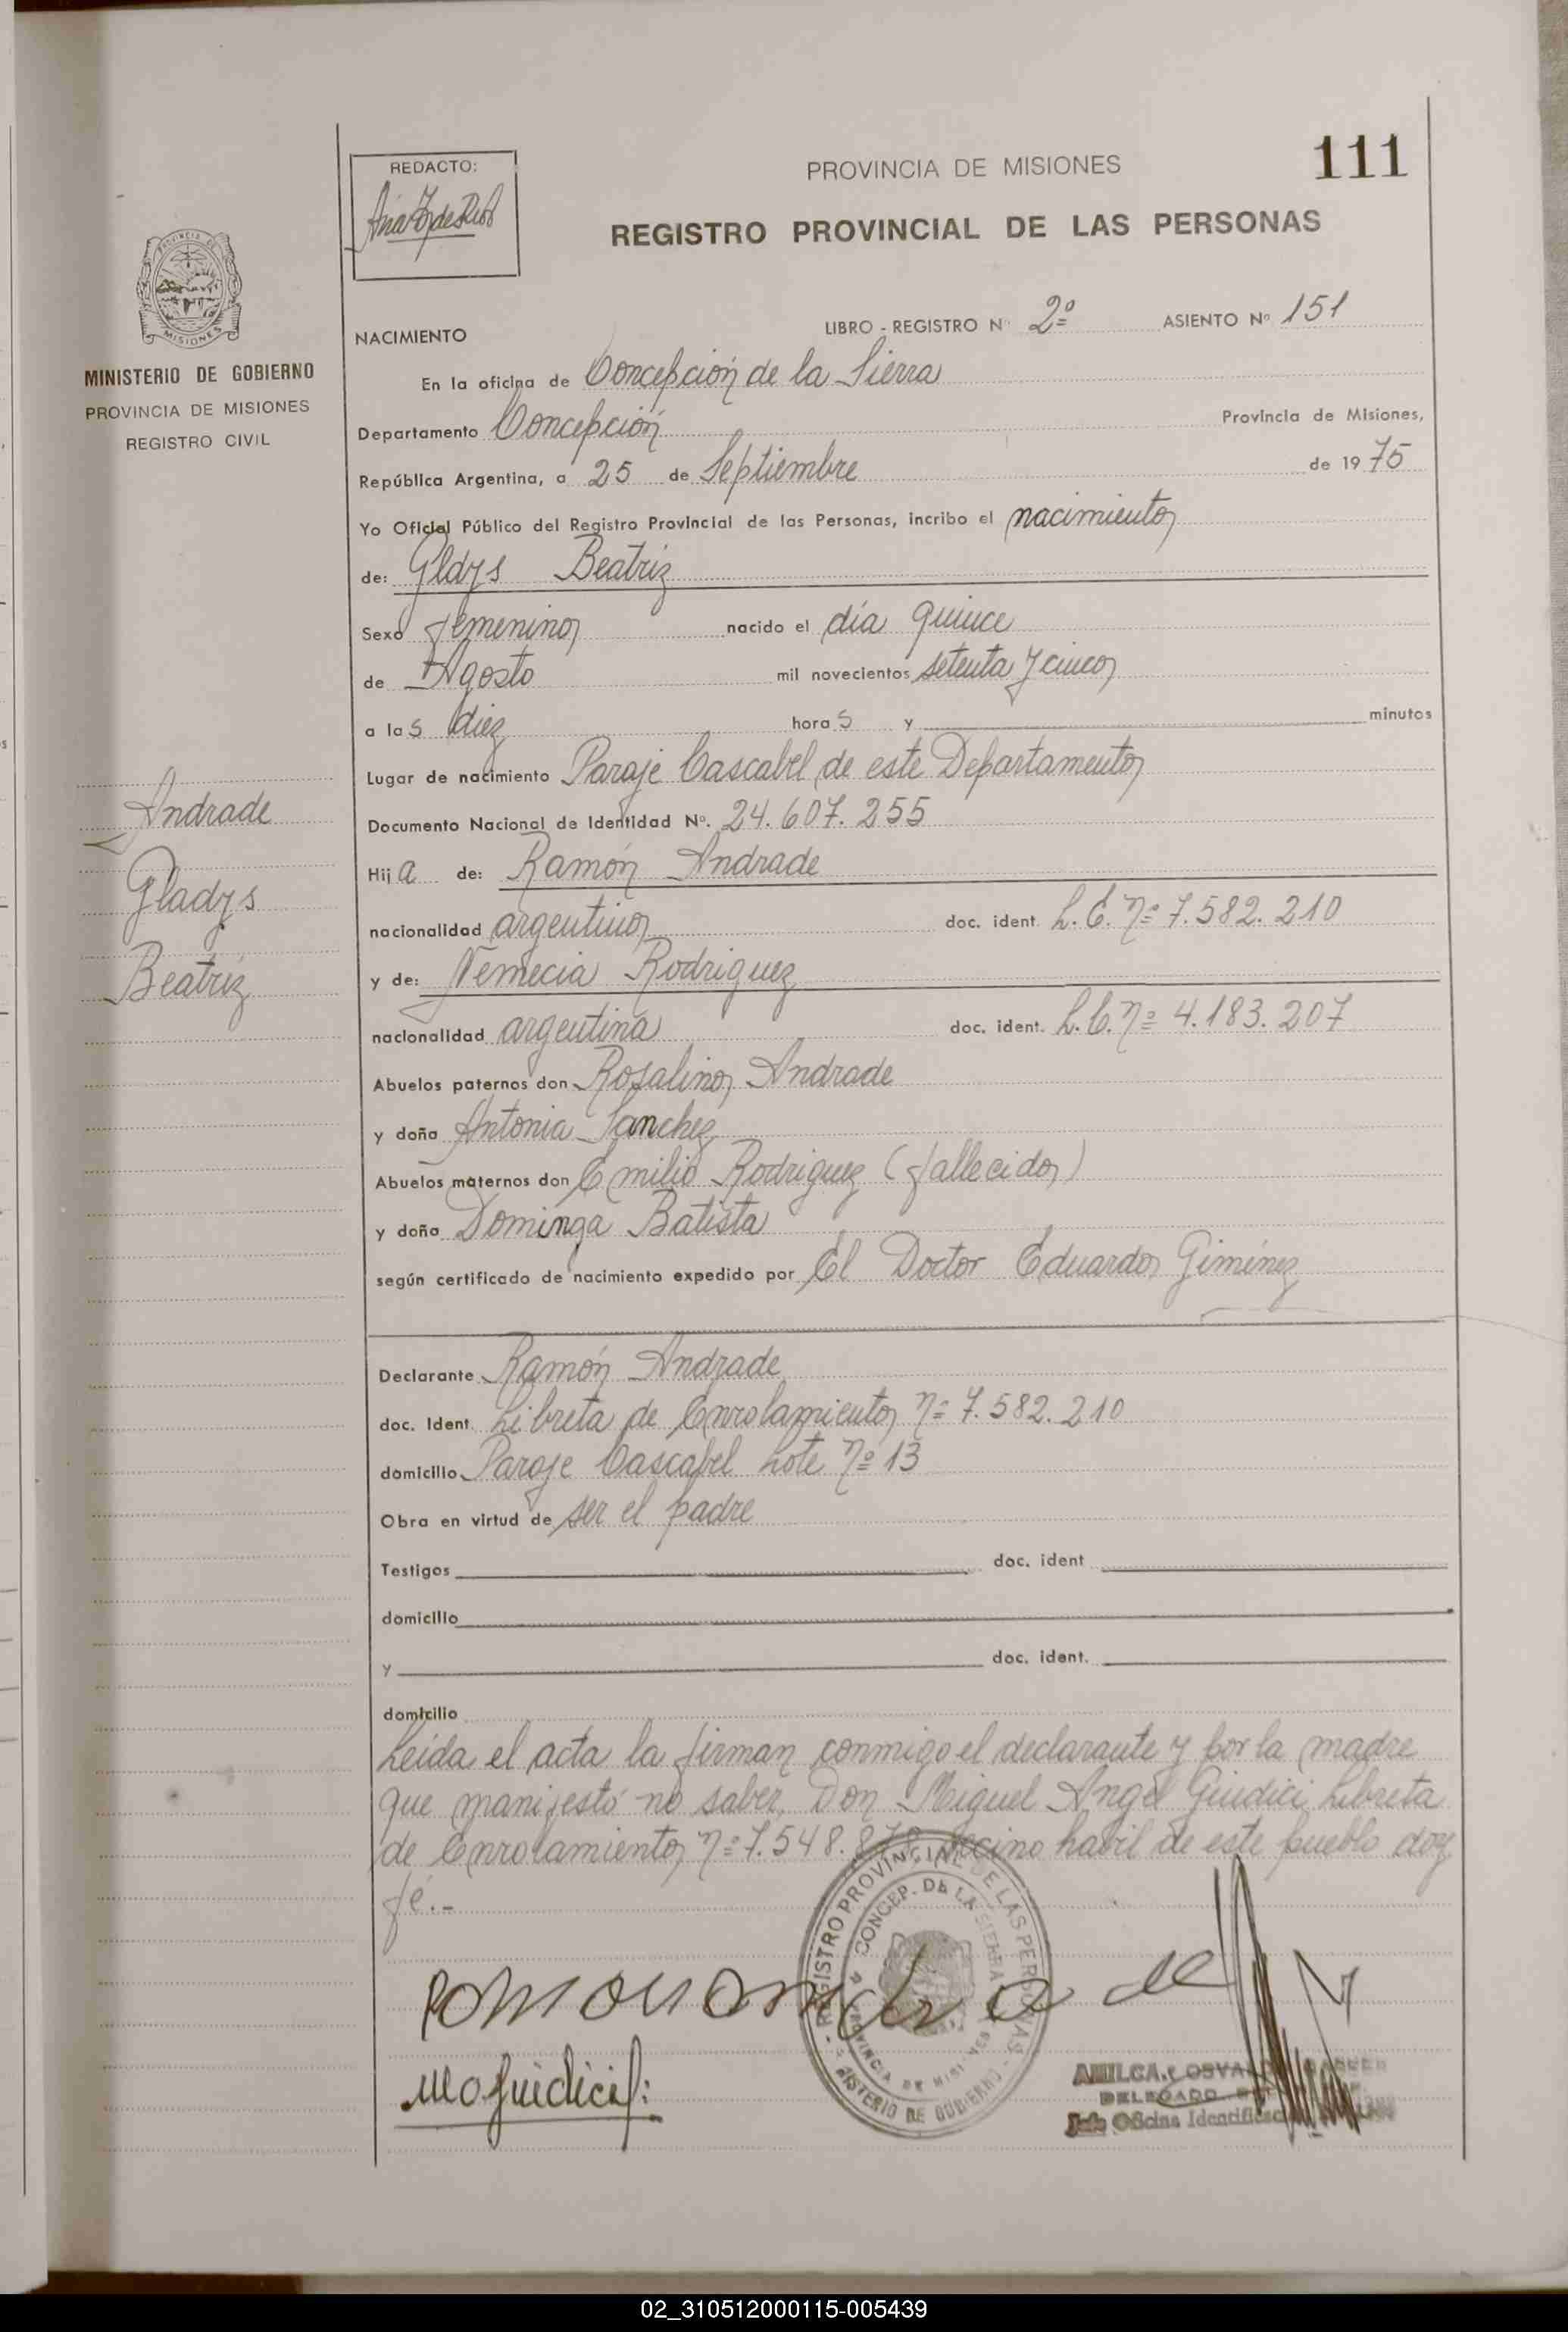 111
REDACTO:
PROVINCIA DE MISIONES
REGISTRO PROVINCIAL DE LAS PERSONAS
PROVINCIA DE
MISIONES
MINISTERIO DE GOBIERNO
PROVINCIA DE MISIONES
REGISTRO CIVIL
NACIMIENTO LIBRO - REGISTRO Nº 2º ASIENTO Nº 151
En la oficina de Concepción de la Sierra
Departamento Concepción Provincia de Misiones,
República Argentina, a 25 de Septiembre de 1975
Yo Oficial Público del Registro Provincial de las Personas, incribo el nacimiento
de: Gldys Beatriz
Sexo femenino nacido el día quince
de Agosto mil novecientos setenta y cinco
a las diez horas y minutos
Lugar de nacimiento Paraje Cascabel de este Departamento
Documento Nacional de Identidad Nº. 24.607.255
Andrade
Gladys
Beatriz
Hija de: Ramón Andrade
nacionalidad argentino doc. ident. L.E. nº 7.582.210
y de: Nemecia Rodriguez
nacionalidad argentina doc. ident. L.C. nº 4.183.207
Abuelos paternos don Rosalino Andrade
y doña Antonia Sanchez
Abuelos maternos don Emilio Rodriguez (fallecido)
y doña Dominga Batista
según certificado de nacimiento expedido por El Doctor Eduardo Giminez
Declarante Ramón Andrade
doc. Ident. Libreta de Enrolamiento nº 7.582.210
domicilio Paraje Cascabel Lote nº 13
Obra en virtud de ser el padre
Testigos doc. ident
domicilio
y doc. ident.
domicilio
Leida el acta la firman conmigo el declarante y por la madre
que manifestó no saber, Don Miguel Angel Giudici Libreta
de Enrolamiento nº 7.548.878 vecino habil de este pueblo doy
fé.-
REGISTRO PROVINCIAL DE LAS PERSONAS
CONCEP. DE LA SIERRA
PROVINCIA DE MISIONES
MINISTERIO DE GOBIERNO
Ramon Andrade
DELEGADO
Jefe Oficina
02_310512000115-005439